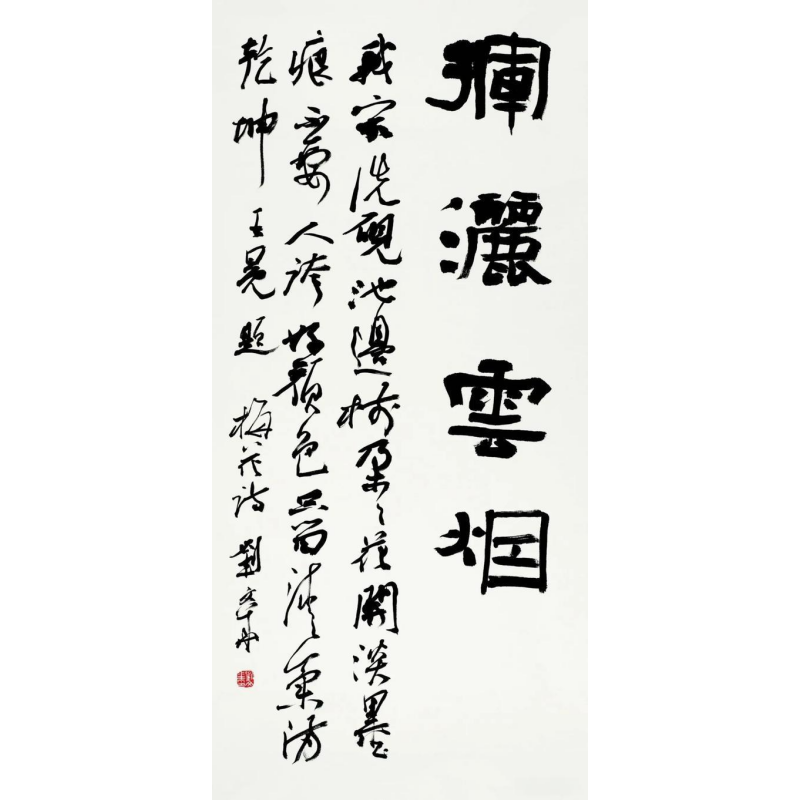 揮灑雲烟
我家洗硯池邊樹朵〻花開淡墨
痕不要人誇好顏色只留清氣滿
乾坤 王冕題 梅花詩 劉